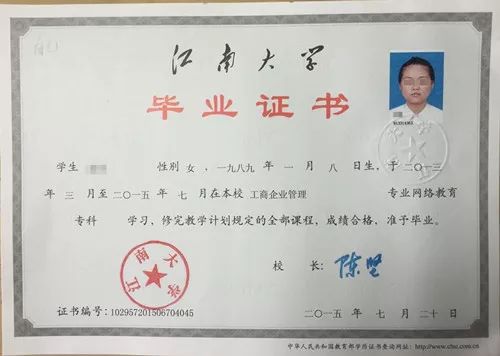 江南大学
毕业证书
学生 性别 女，一九八九 年 一 月 八 日生，于 二〇一三
年 三 月至 二〇一五 年 七 月在本校 工商企业管理 专业网络教育
专科 学习、修完教学计划规定的全部课程，成绩合格，准予毕业。
江南大学
校 长：陈坚
证书编号：102957201506704045
二〇一五 年 七 月 二十 日
中华人民共和国教育部学历证书查询网址：http://www.chsi.com.cn